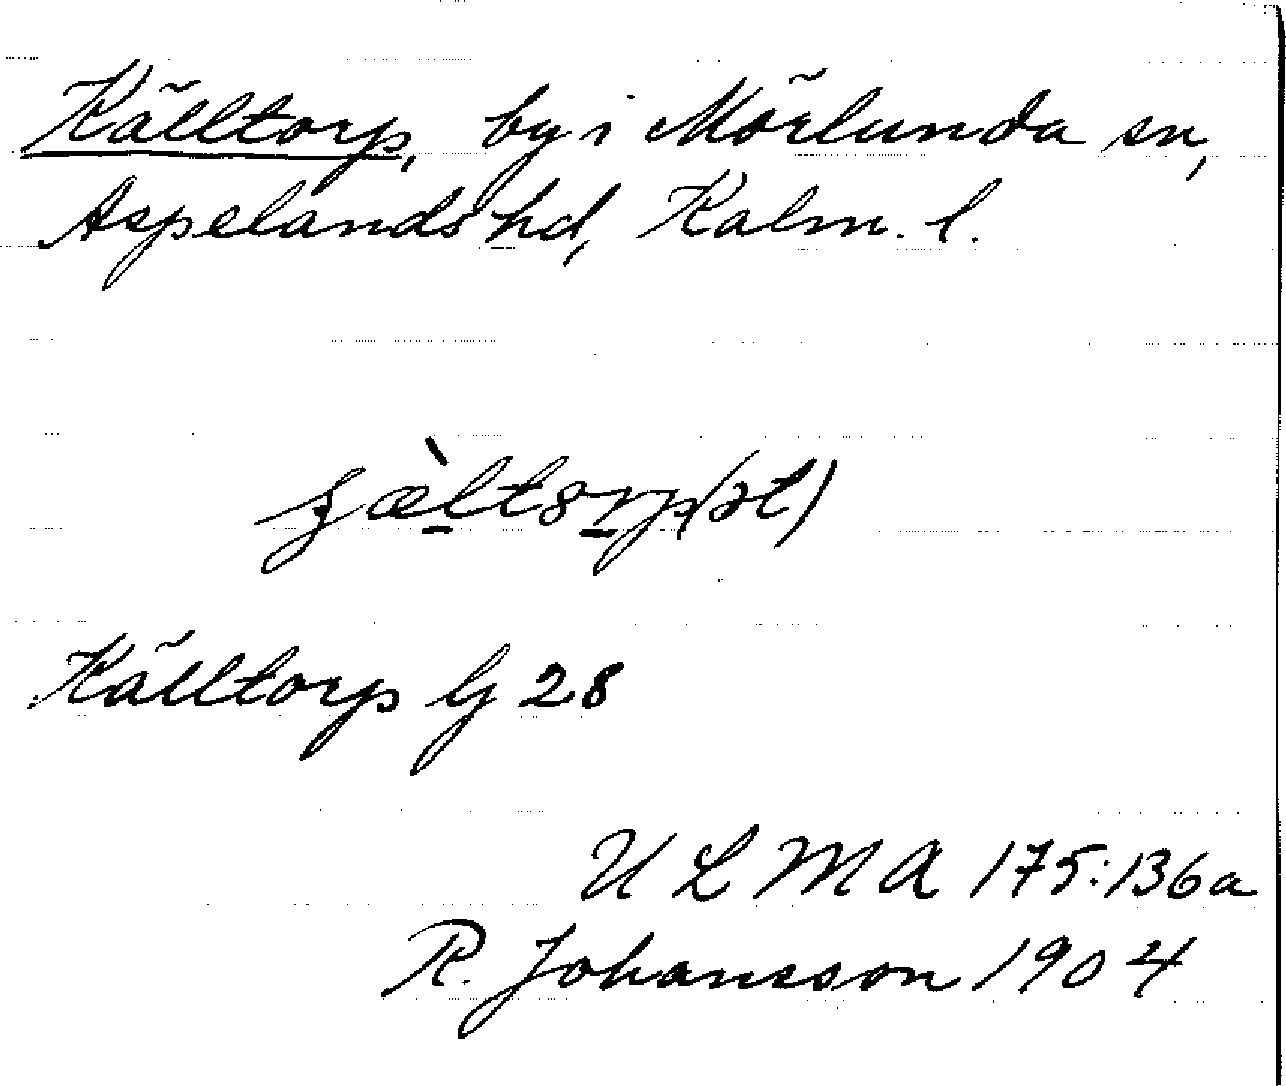 Källtorp, by i Mörlunda sn,
Aspelands hd, Kalm. l.
Källtorp G 28
ULMA 175:136a
R. Johansson 1904